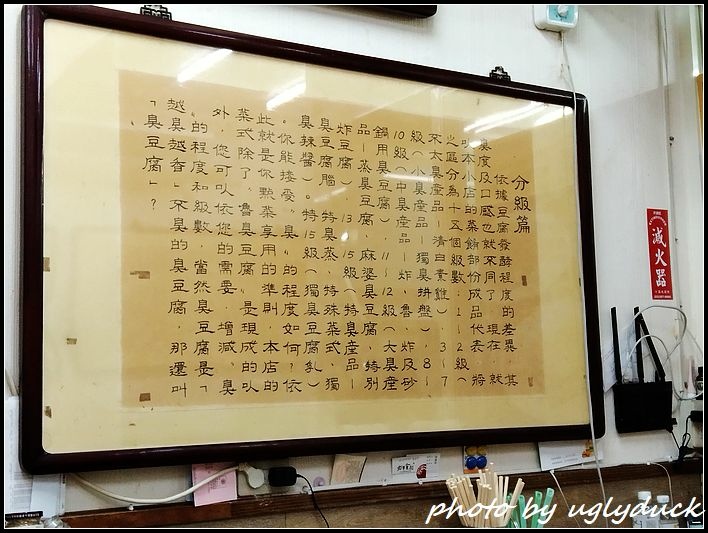 分級篇
依據豆腐發酵程度的差異，其
臭度及口感也就不同了，現在，就
以本小店的菜餚部份成品代表，將
之區分為十五個級數：1－2級（
不太臭產品－清白素雞），3－7
級（小臭產品－獨臭拼盤），8－
10級（中臭產品－炸、魯、炸及砂
鍋用臭豆腐），11－12級（大臭產
品－蒸臭豆腐、麻婆臭豆腐、特別
炸豆腐），13－15級（特臭產品－
臭豆腐腦、特臭蒸、特殊菜式、獨
臭辣醬）。特15級（獨臭腐乳）
。你能接受「臭」的程度如何？依
此就是你點菜享用的準則，本店的
菜式除了「魯臭豆腐」是現成的以
外，您可以依您需要，增減「臭
」的程度和級數，當然臭豆腐是「
越臭越香」，不臭的臭豆腐，那還叫
「臭豆腐」？
滅火器
photo by uglyduck